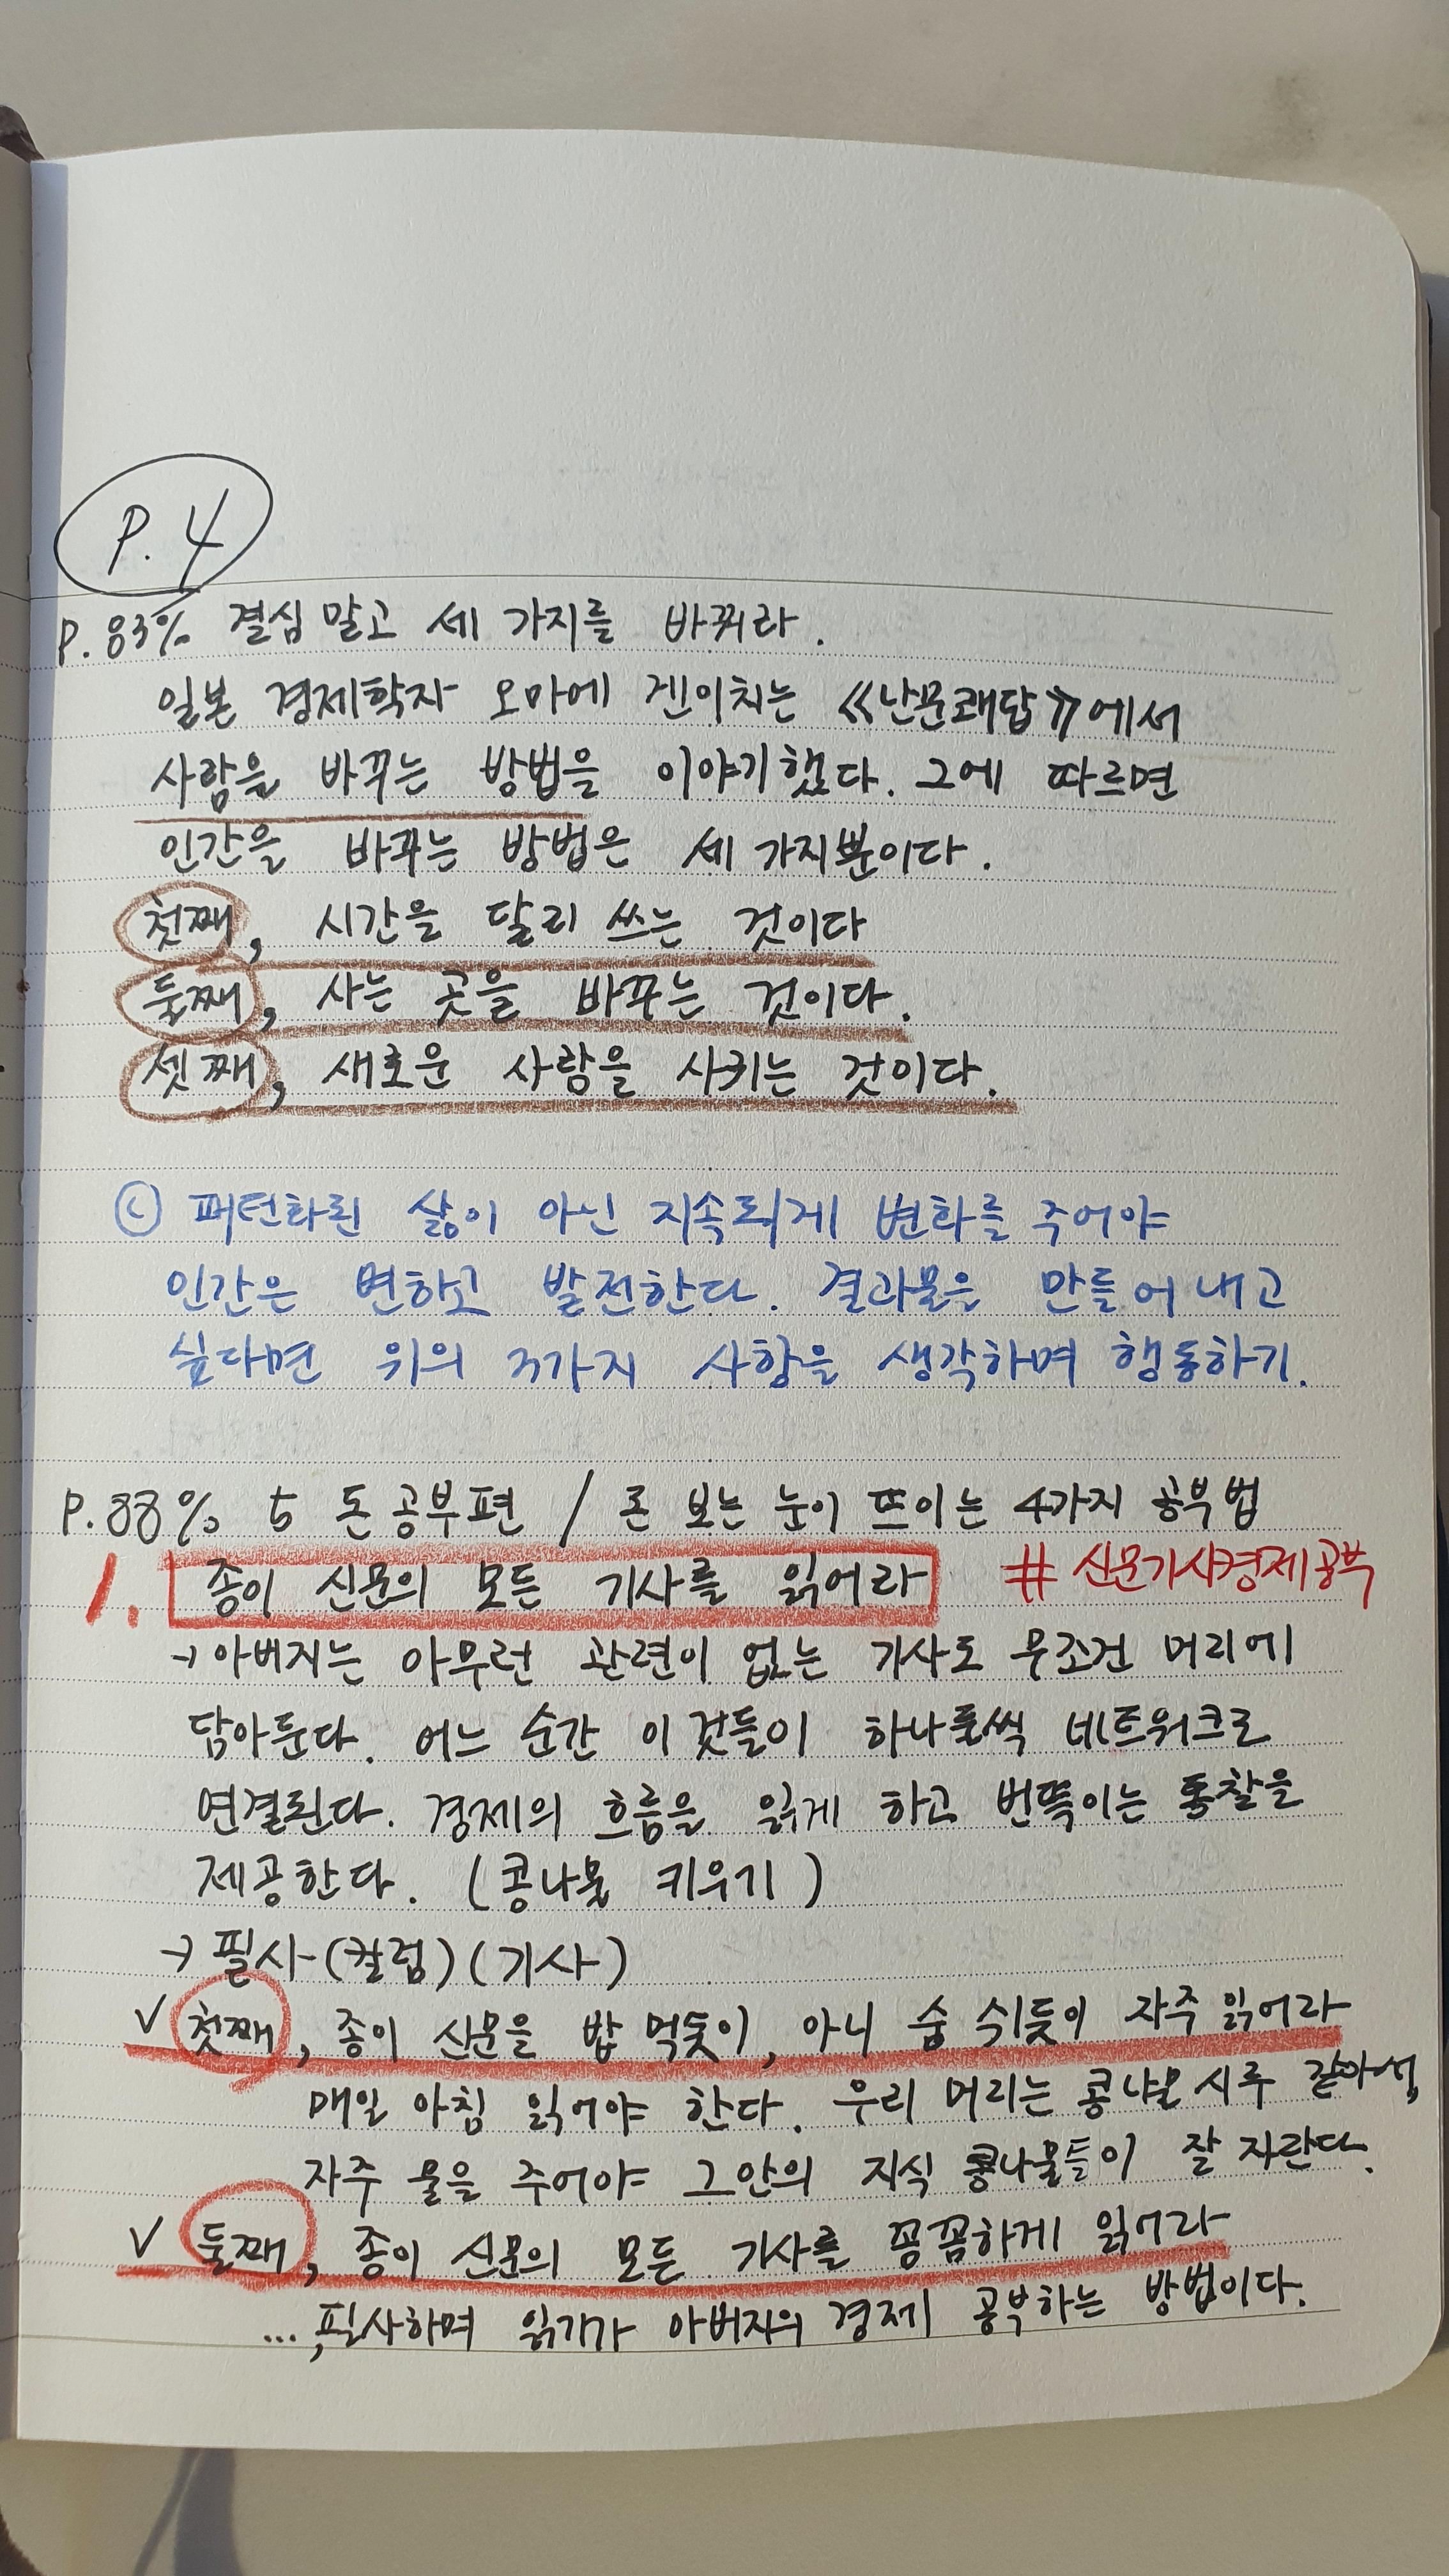 P.4
P.83% 결심 말고 세 가지를 바꿔라.
일본 경제학자 오마에 겐이치는 《난문쾌답》에서
사람을 바꾸는 방법을 이야기했다. 그에 따르면
인간을 바꾸는 방법은 세 가지뿐이다.
첫째, 시간을 달리 쓰는 것이다
둘째, 사는 곳을 바꾸는 것이다.
셋째, 새로운 사람을 사귀는 것이다.
패턴화된 삶이 아닌 지속되게 변화를 주어야
인간은 변하고 발전한다. 결과물은 만들어 내고
싶다면 위의 3가지 사항을 생각하며 행동하기.
P.88% 5 돈 공부편 / 돈 보는 눈이 뜨이는 4가지 공부법
1. 종이 신문의 모든 기사를 읽어라 # 신문기사경제공부
→ 아버지는 아무런 관련이 없는 기사도 무조건 머리에
담아둔다. 어느 순간 이것들이 하나둘씩 네트워크로
연결된다. 경제의 흐름을 읽게 하고 번뜩이는 통찰을
제공한다. (콩나물 키우기)
→ 필사-(칼럼)(기사)
✓ 첫째, 종이 신문을 밥 먹듯이, 아니 숨 쉬듯이 자주 읽어라
매일 아침 읽어야 한다. 우리 머리는 콩나물 시루 같아서,
자주 물을 주어야 그 안의 지식 콩나물들이 잘 자란다.
✓ 둘째, 종이 신문의 모든 기사를 꼼꼼하게 읽어라
..., 필사하며 읽기가 아버지의 경제 공부하는 방법이다.